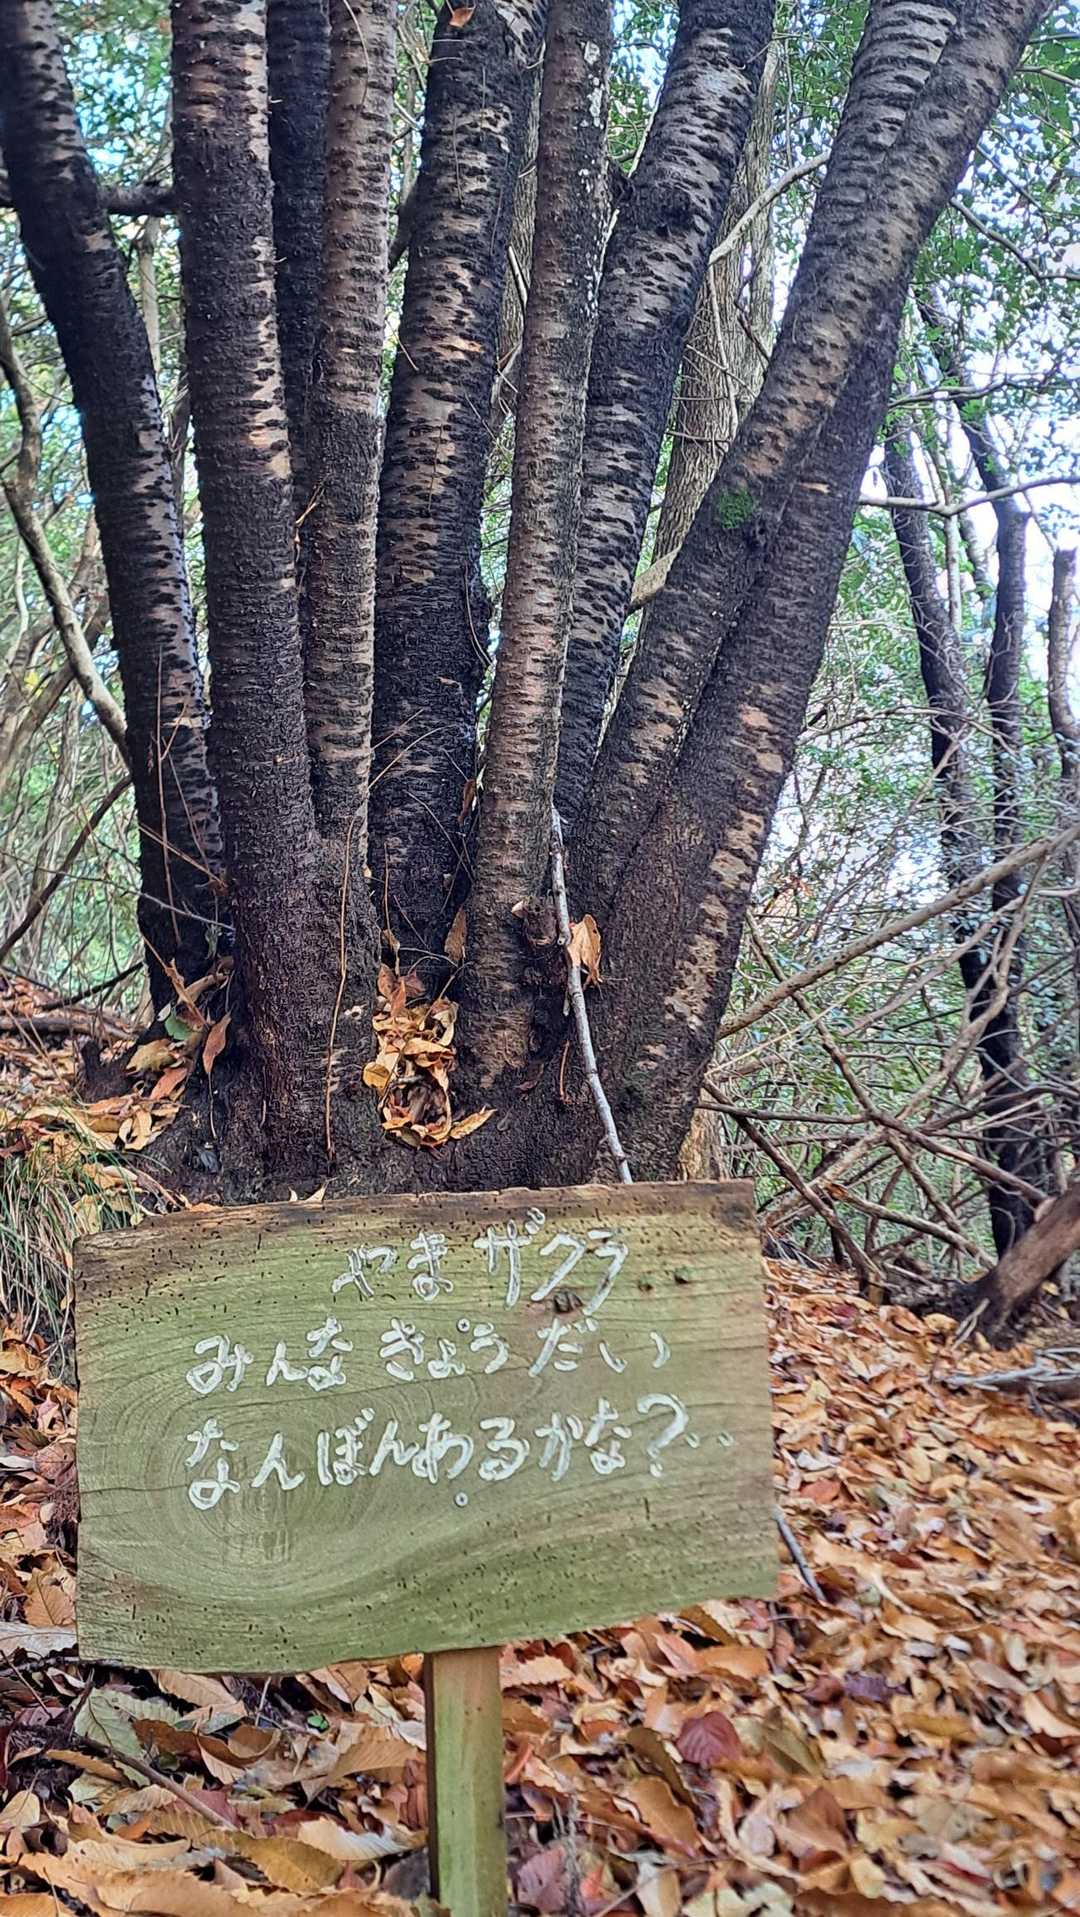 やまザクラ
みんなきょうだい
なんぼんあるかな?..